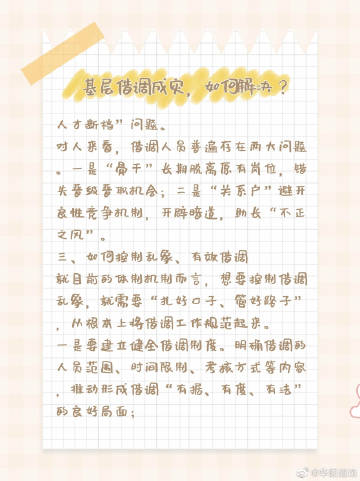 基层借调成灾，如何解决？
人才断档”问题。
对人来看，借调人员普遍存在两大问题
。一是“骨干”长期脱离原有岗位，错
失晋级晋职机会；二是“关系户”避开
良性竞争机制，开辟暗道，助长“不正
之风”。
三、如何控制乱象、有效借调
就目前的体制机制而言，想要控制借调
乱象，就需要“扎好口子、管好路子”
，从根本上将借调工作规范起来。
一是要建立健全借调制度。明确借调的
人员范围、时间限制、考核方式等内容
，推动形成借调“有据、有度、有法”
的良好局面；